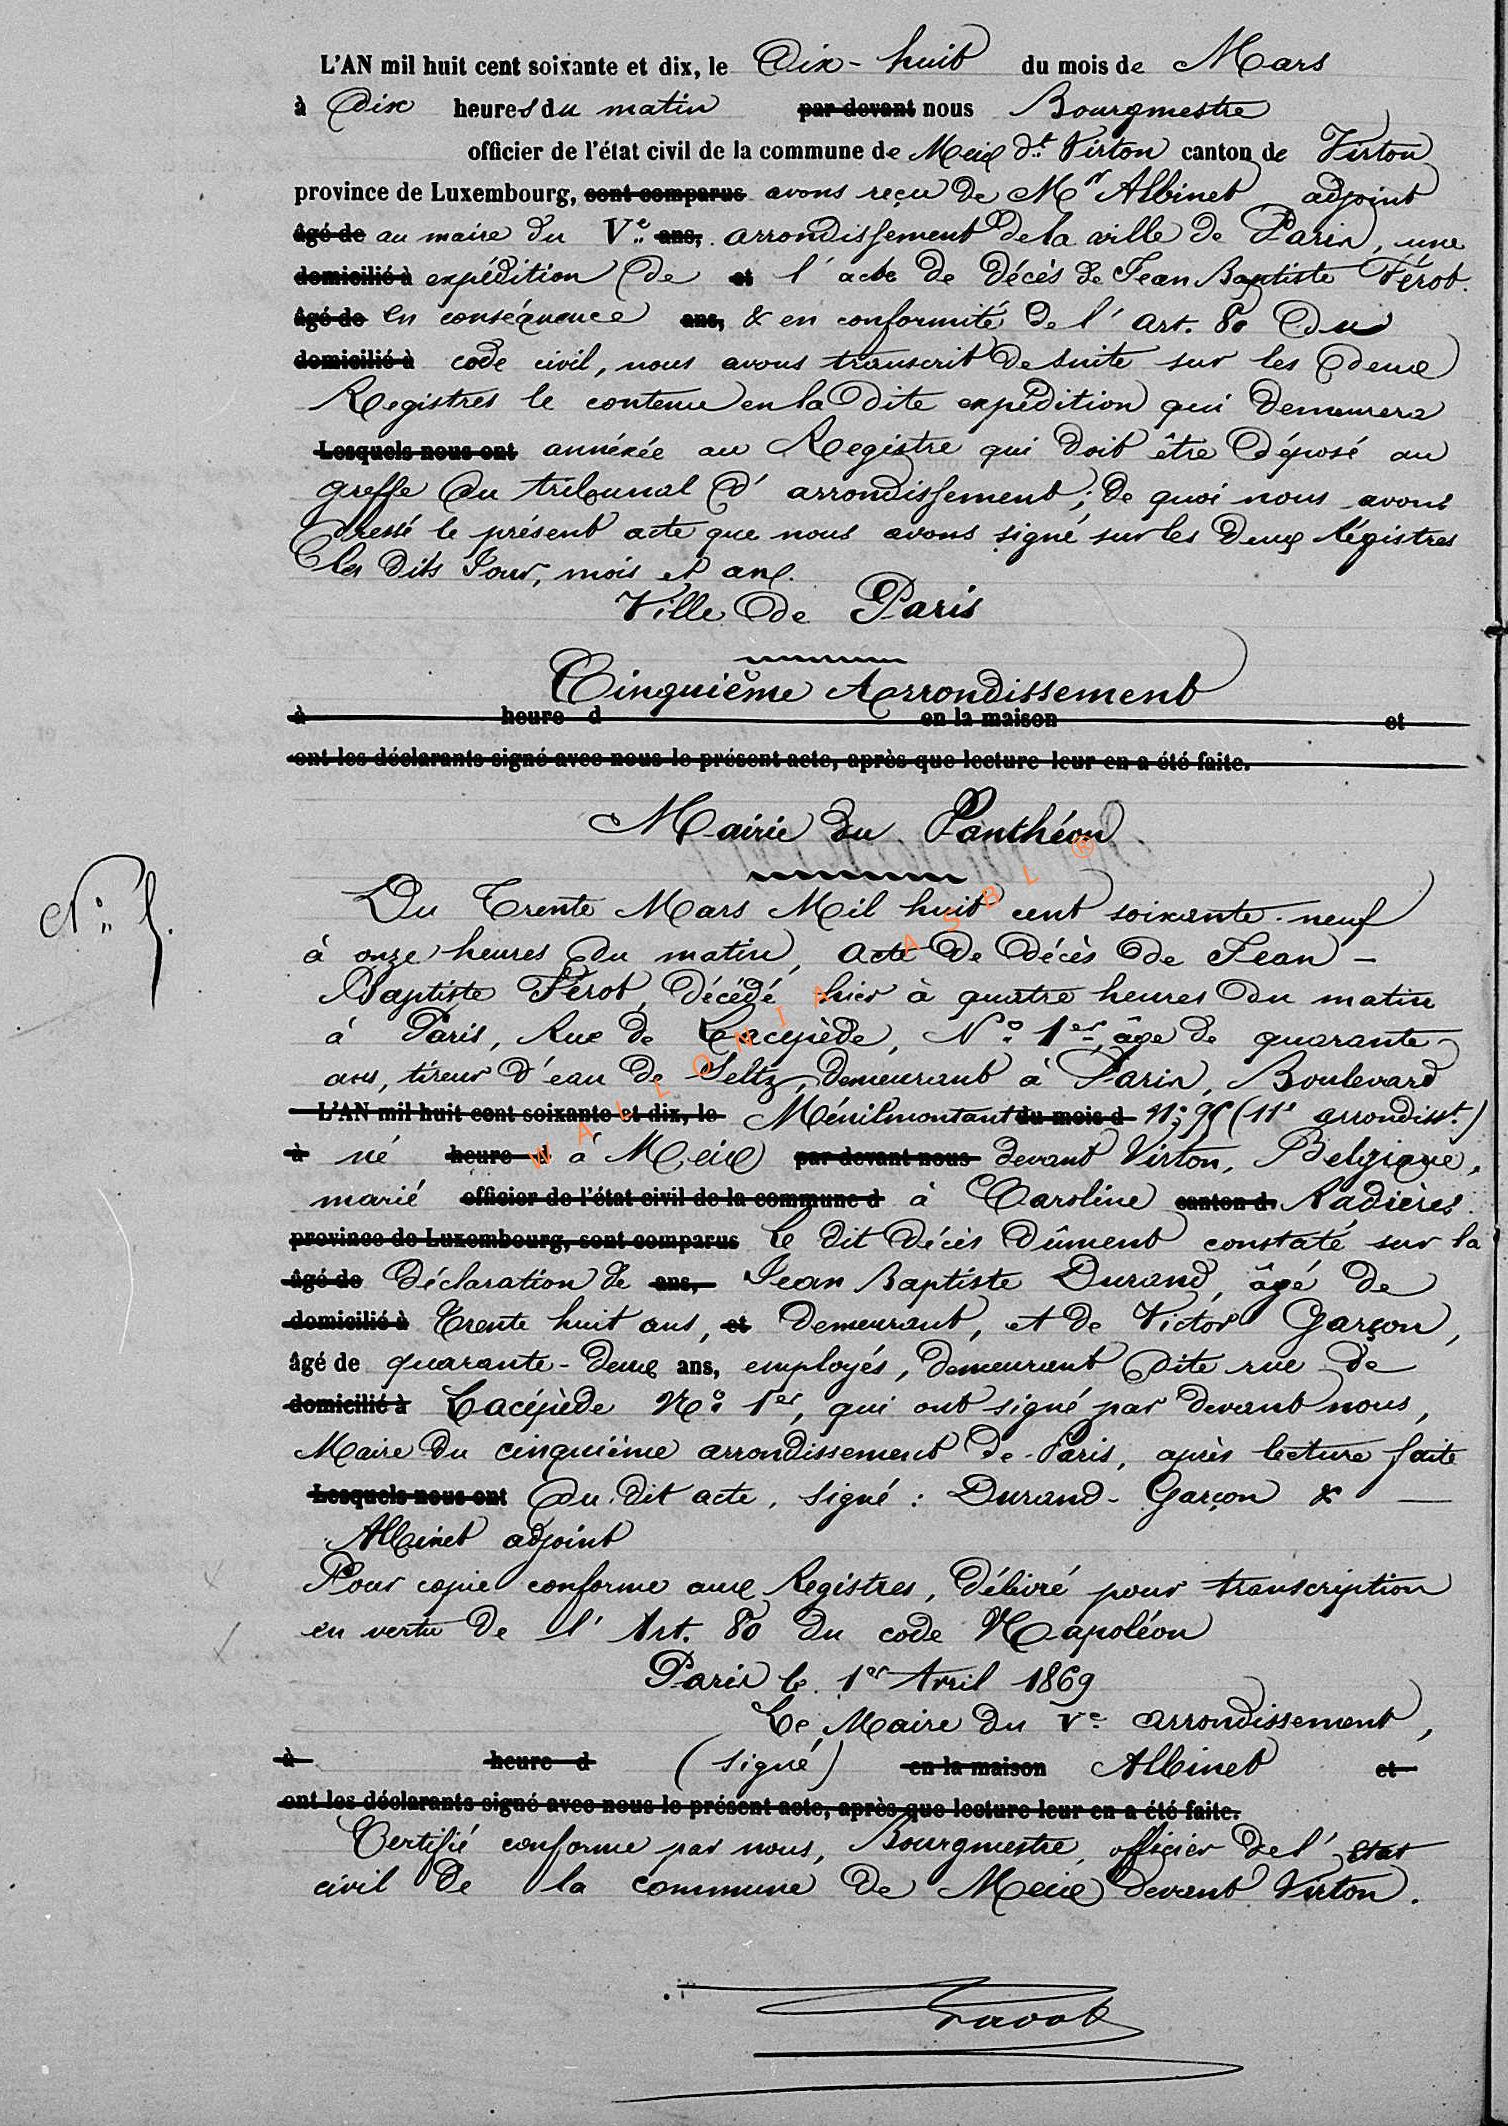 L'AN mil huit cent soixante et dix, le Dix-huit du mois de Mars
à Dix heures du matin par devant nous Bourgmestre
officier de l'état civil de la commune de Meix dt Virton canton de Virton
province de Luxembourg, sont comparus avons reçu de Mr Albinet adjoint
âgé de au maire du Ve ans, arrondissement de la ville de Paris, une
domicilié à expédition de et l'acte de décès de Jean Baptiste Férot.
âgé de En conséquence ans, & en conformité de l'art. 80 du
domicilié à code civil, nous avons transcrit de suite sur les deux
Registres le contenu en la dite expédition qui demeurera
Lesquels nous ont annéxée au Registre qui doit être déposé au
greffe du tribunal d'arrondissement; de quoi nous avons
dressé le présent acte que nous avons signé sur les deux Régistres
les dits Jour, mois et an.
Ville de Paris
Cinquième Arrondissement
à heure d en la maison et
ont les déclarants signé avec nous le présent acte, après que lecture leur en a été faite.
Mairie du Panthéon
N° 5.
Du Trente Mars Mil huit cent soixante-neuf
à onze heures du matin, acte de décès de Jean-
Baptiste Férot, décédé hier à quatre heures du matin
à Paris, Rue de Lacépède, N° 1er, âge de quarante
ans, tireur d'eau de Seltz, demeurant à Paris, Boulevard
L'AN mil huit cent soixante et dix, le Ménilmontant du mois d N° 95 (11e arrondisst.)
à né heure d à Meix par devant nous devant Virton, Belgique,
marié officier de l'état civil de la commune d à Caroline canton d Radières.
province de Luxembourg, sont comparus Le dit décès dûment constaté sur la
âgé de déclaration de ans, Jean Baptiste Durand, âgé de
domicilié à Trente huit ans, et demeurant, et de Victor Garçon,
âgé de quarante-deux ans, employés, demeurant dite rue de
domicilié à Lacépède N° 1er, qui ont signé par devant nous,
Maire du cinquième arrondissement de Paris, après lecture faite
Lesquels nous ont du dit acte, signé: Durand-Garçon & —
Albinet adjoint
Pour copie conforme aux Registres, délivré pour transcription
en vertu de l'Art. 80 du code Napoléon
Paris le 1er Avril 1869
Le Maire du Ve arrondissement,
à heure d (signé) en la maison Albinet et
ont les déclarants signé avec nous le présent acte, après que lecture leur en a été faite.
Certifié conforme par nous, Bourgmestre, officier de l'état
civil de la commune de Meix devant Virton.
WALLONIA ASBL ®